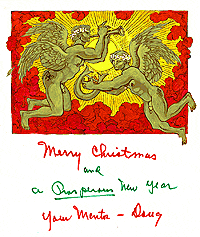 Merry Christmas
and
a Prosperous New Year
Your Mentor - Doug